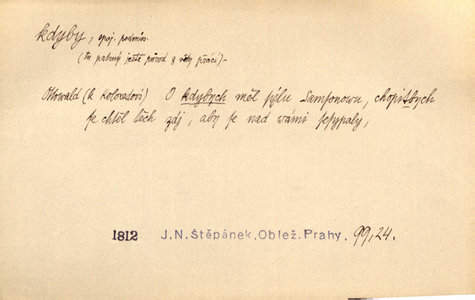 kdyby, spoj. podmín.
(tu patrný ještě původ z věty přací) –
Ottowald (k Koloredovi) O kdybych měl sylu Samsonowu, chopilbych
se chtěl těch zdj, aby se nad wámi sesypaly,
1812 J. N. Štěpánek, Oblež. Prahy. 99, 24.